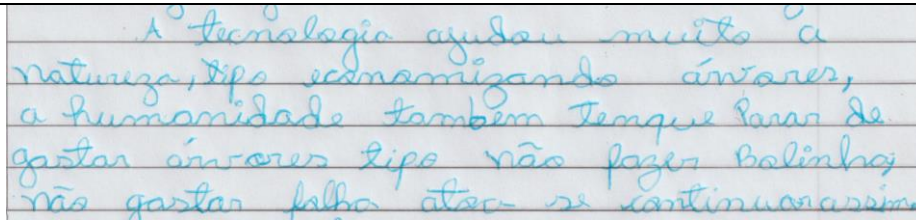 A tecnologia ajudou muito a
natureza, tipo economizando árvores,
a humanidade também temque Parar de
gastar árvores tipo não fazer Bolinhas
não gastar folha atoa se continuar assim